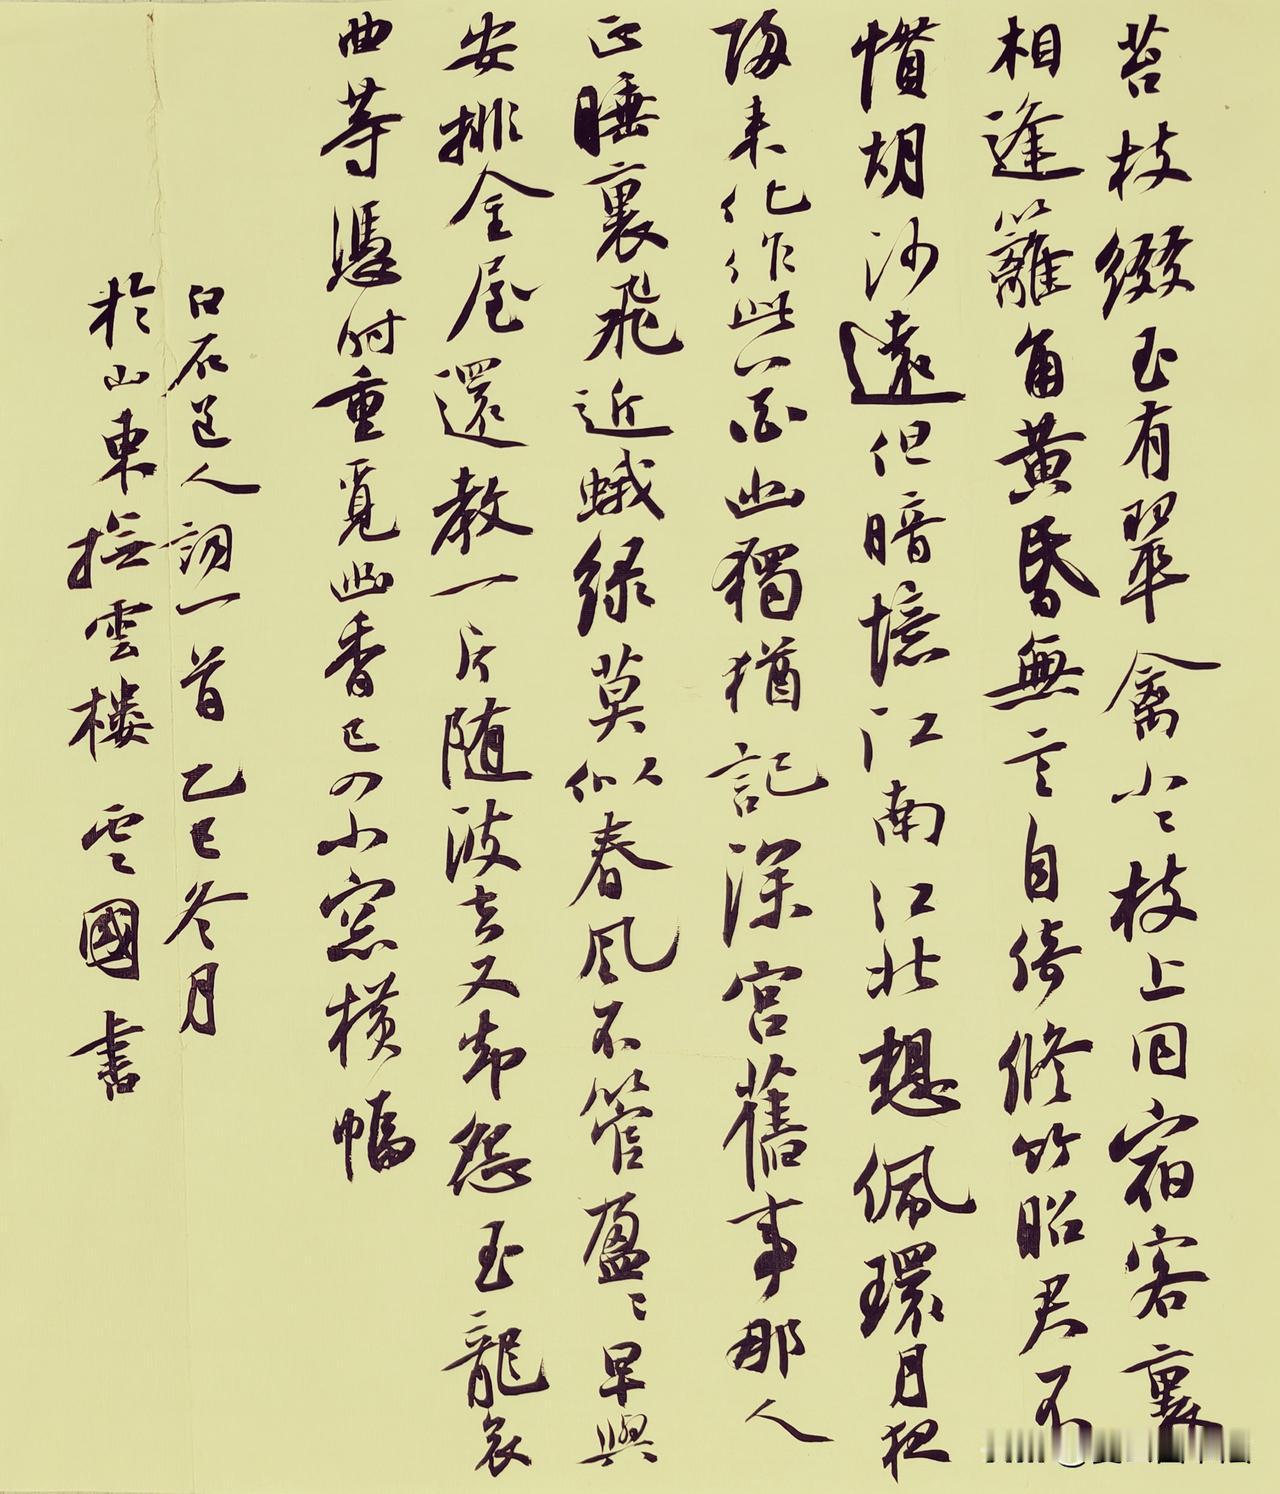 苔枝缀玉有翠禽小々枝上同宿客裏
相逢籬角黄昏無言自倚修竹昭君不
慣胡沙遠但暗憶江南江北想佩環月夜
歸来化作此花幽獨猶記深宮舊事那人
正睡裏飛近蛾绿莫似春風不管盈々早與
安排金屋還教一片随波去又却怨玉龍哀
曲等恁时重覓幽香已入小窓横幅
白石道人詞一首乙巳冬月
於山東撫雲樓雲國書